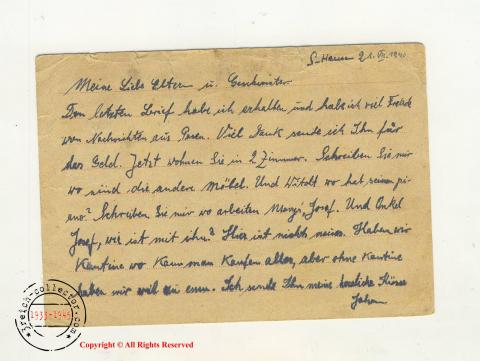 S-Hausen 21.VII.1940
Meine Liebe Eltern u. Geschwister.
Den letzten Brief habe ich erhalten und habe ich viel Freude
von Nachrichten aus Posen. Viel Dank sende ich Ihn für
das Geld. Jetzt wohnen Sie in 2 Zimmer. Schreiben Sie mir
wo sind die andere Möbel. Und wo hat seinen pi-
ano? Schreiben Sie mir wo arbeiten Josef. Und Onkel
Josef, wie ist mit ihn? Hier ist nichts neues. Haben wir
Kantine wo kann man kaufen alles, aber ohne Kantine
haben wir viel zu essen. Ich sende Ihn meine herzliche Küsse
3reich-collector.com
1933-1945
Copyright © All Rights Reserved